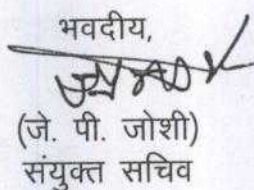 भवदीय,
(जे. पी. जोशी)
संयुक्त सचिव